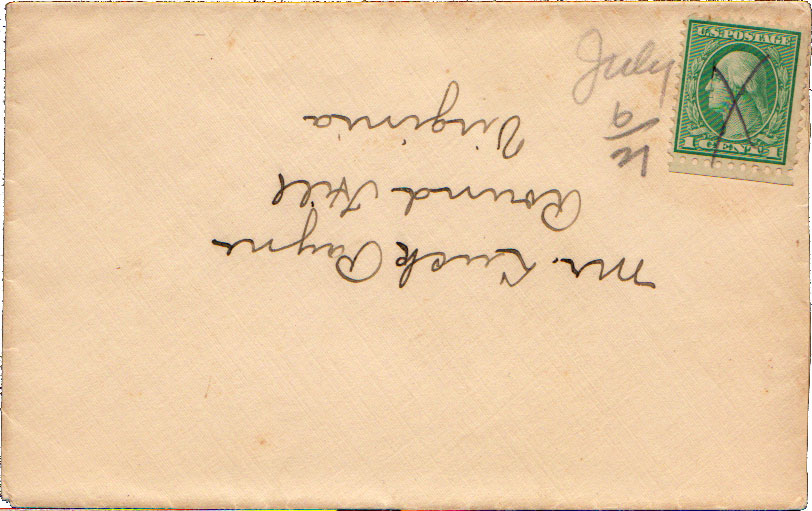 Mr. Luck Payne
Round Hill
Virginia
July
9
12
U.S. POSTAGE
1 CENT 1